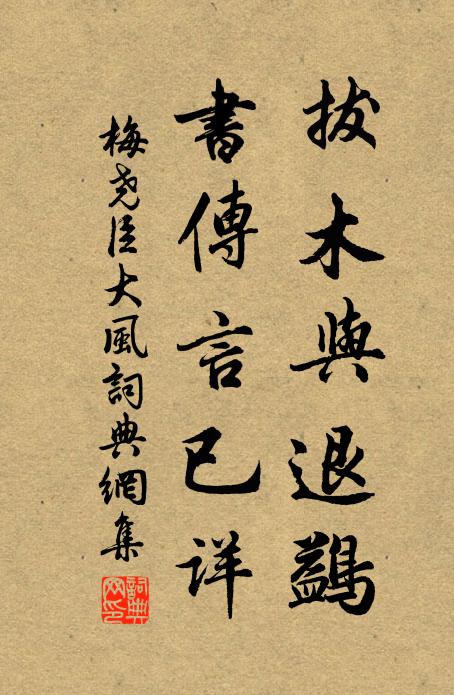 拔木與退鷁
書傳言已详
梅尧臣大風詞典網集
詞典网印